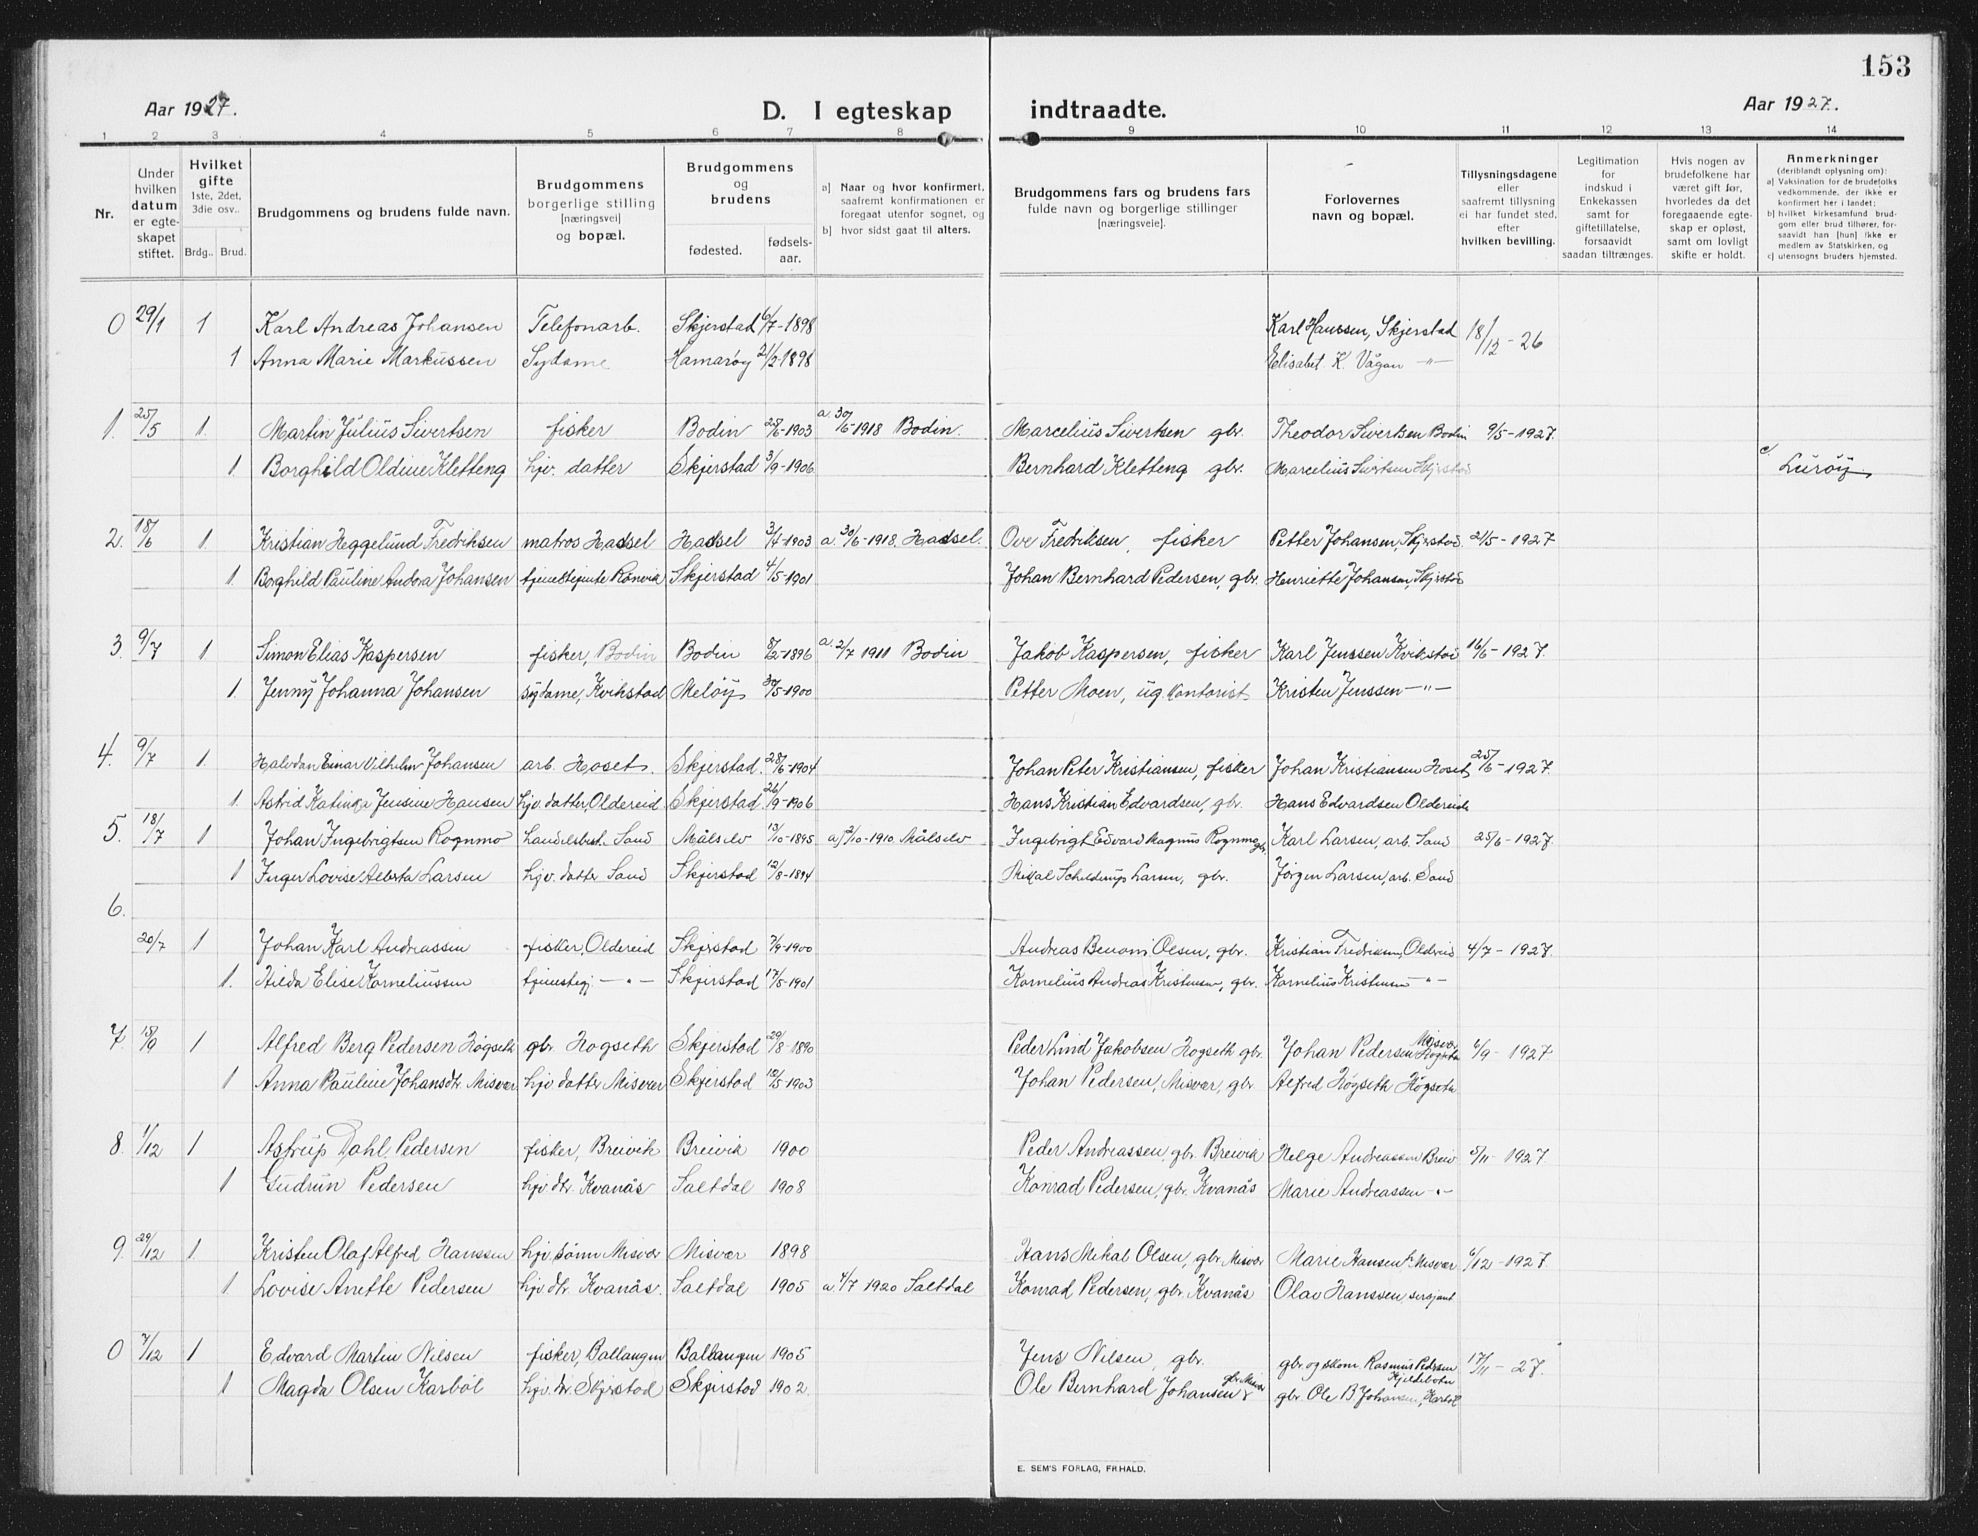 153
Aar 1927. D. I egteskap indtraadte. Aar 1927.
1 2 3 4 5 6 7 8 9 10 11 12 13 14
Nr.
Under hvilken datum er egteskapet stiftet.
Hvilket gifte 1ste, 2det, 3die osv..
Brdg.. Brud.
Brudgommens og brudens fulde navn.
Brudgommens borgerlige stilling [næringsvei] og bopæl.
Brudgommens og brudens
fødested. fødselsaar.
a] Naar og hvor konfirmert, saafremt konfirmationen er foregaat utenfor sognet, og
b] hvor sidst gaat til alters.
Brudgommens fars og brudens fars fulde navn og borgerlige stillinger [næringsveie].
Forlovernes navn og bopæl.
Tillysningsdagene eller saafremt tillysning ei har fundet sted, efter hvilken bevilling.
Legitimation for indskud i Enkekassen samt for giftetillatelse, forsaavidt saadan tiltrænges.
Hvis nogen av brudefolkene har været gift før, hvorledes da det foregaaende egteskap er opløst, samt om lovligt skifte er holdt.
Anmerkninger (deriblandt oplysning om): a] Vaksination for de brudefolks vedkommende, der ikke er konfirmert her i landet; b] hvilket kirkesamfund brudgom eller brud tilhører, forsaavidt han [hun] ikke er medlem av Statskirken, og c] utensogns bruders hjemsted.
0 29/1 1 Karl Andreas Johansen Telefonarb. Skjerstad 6/7-1898 Karl Hanssen, Skjerstad 18/12-26
1 Anna Marie Markussen Sydame Hamarøy 21/2-1898 Elisabet K. Vågan -"-
1. 25/5 1. Martin Julius Sivertsen fisker Bodin 28/6-1903 a. 30/6-1918 Bodin. Marcelius Sivertsen gbr. Theodor Sivertsen Bodin 9/5-1927.
1. Borghild Oldine Kletteng hjv. datter Skjerstad 3/9-1906 Bernhard Kletteng gbr. Marcelius Sivertsen Skjerstad c/ Lurøy
2. 18/6 1. Kristian Heggelund Fredriksen matros Hadsel Hadsel 3/4-1903 a. 30/6-1918. Hadsel. Ove Fredriksen, fisker Petter Johansen, Skjerstad. 21/5-1927
1. Borghild Pauline Andora Johansen tjenestejente Rønvik Skjerstad 4/5-1901 Johan Bernhard Pedersen, gbr. Henriette Johansen, Skjerstad
3. 9/7 1 Simon Elias Kaspersen fisker, Bodin Bodin 8/2-1896 a. 2/7 1911 Bodin Jakob Kaspersen, fisker Karl Jenssen Kvikstad 16/6-1927.
1. Jenny Johanna Johansen sydame, Kvikstad Meløy 30/5-1900 Petter Moen, ug. kontorist Kristen Jenssen -"-
4. 9/7 1. Halvdan Einar Vilhelm Johansen arb. Hoset. Skjerstad. 28/6-1904 Johan Peter Kristiansen, fisker Johan Kristiansen Hoset 25/6-1927.
1. Astrid Katinka Jensine Hansen hjv. datter, Oldereid Skjerstad 26/9-1906 Hans Kristian Edvardsen, gbr. Hans Edvardsen Oldereid
5. 18/7 1 Johan Ingebrigtsen Rognmo handelsbest. Sand Målselv 13/10-1895 a) 2/10-1910 Målselv Ingebrigt Edvard Magnus Rognmo gbr. Karl Larsen, arb. Sand 25/6-1927.
1 Inger Lovise Alberta Larsen hjv. datter Sand Skjerstad 12/8-1894 Mikal Schelderup Larsen, gbr. Jørgen Larsen, arb. Sand
6. 20/7 1 Johan Karl Andreassen fisker, Oldereid Skjerstad 7/9-1900 Andreas Benoni Olsen, gbr. Kristian Fredriksen, Oldereid 4/7-1927.
1. Hilda Elise Korneliussen tjenestepj -"- Skjerstad 17/5-1901 Kornelius Andreas Kristensen, gbr. Kornelius Kristensen -"-
7. 18/9 1 Alfred Berg Pedersen Høgseth gbr. Høgseth Skjerstad 29/8-1890 Peder Lind Jakobsen Høgseth gbr. Johan Pedersen Misvær 6/9-1927
1 Anna Pauline Johansdtr Misvær hjv. datter Misvær Skjerstad 10/5-1903 Johan Pedersen, Misvær, gbr. Alfred Høgseth Høgseth
8. 1/12 1 Astrup Dahl Pedersen fisker, Breivik Breivik 1900 Peder Andreassen, gbr. Breivik Helge Andreassen Breiv 5/11-1927.
1 Gudrun Pedersen hjv. dtr. Kvanås Saltdal 1908 Konrad Pedersen, gbr. Kvanås Marie Andreassen -"-
9. 29/12 1 Kristen Olaf Alfred Hanssen hjv. sønn Misvær Misvær 1898 Hans Mikal Olsen, gbr. Misvær Marie Hansen Misvær 6/12-1927.
1 Lovise Anette Pedersen hjv. dtr. Kvanås. Saltdal 1905 a. 4/7 1920 Saltdal Konrad Pedersen, gbr. Kvanås Olav Hanssen, sersjant
0 7/12 1 Edvard Martin Nilsen fisker, Ballangen Ballangen 1905 Jens Nilsen, gbr. gbr. og skom. Rasmus Pedersen Kjeldebotn 17/11-27.
1 Magda Olsen Karbøl hjv. dtr. Skjerstad Skjerstad 1902. Ole Bernhard Johansen gbr. Misvær gbr. Ole B. Johansen, Karbøl
E. SEM'S FORLAG, FR.HALD.